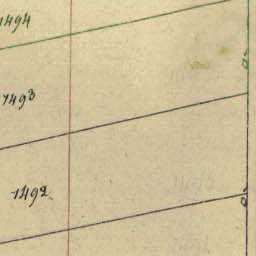 1494
1493
1492